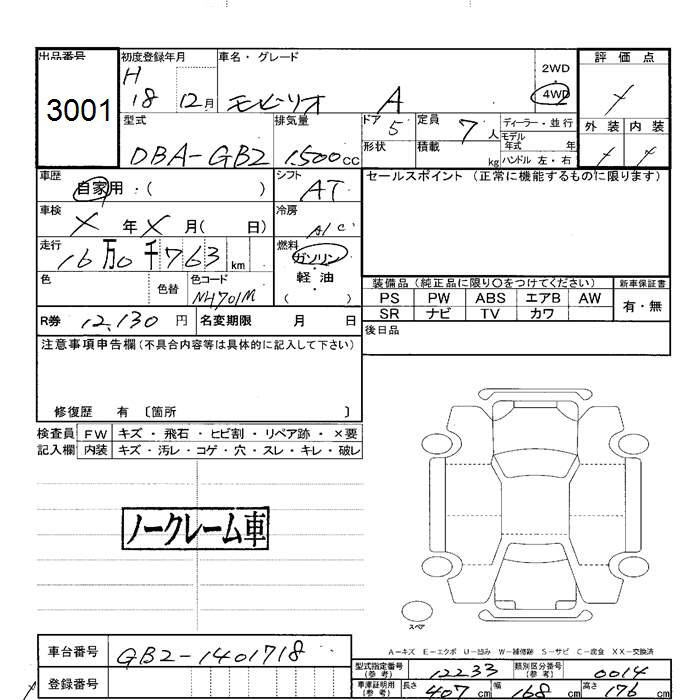 出品番号
3001
初度登録年月
H
18 12月
車名・グレード
モビリオ A
2WD
4WD
評価点
/
型式
DBA-GB2
排気量
1500cc
ドア
5
形状
定員
7人
積載
kg
ディーラー・並行
モデル
年式 年
ハンドル 左・右
外装 内装
/ /
車歴
自家用・( )
シフト
AT
セールスポイント (正常に機能するものに限ります)
車検
X年X月( 日)
冷房
A/C
走行
16万0千763km
燃料
ガソリン
軽・油
( )
色
色替
色コード
NH701M
装備品 (純正品に限り○をつけてください)
新車保証書
PS PW ABS エアB AW
有・無
SR ナビ TV カワ
R券 12,130円
名変期限 月 日
後日品
注意事項申告欄(不具合内容等は具体的に記入して下さい)
修復歴 有 〔箇所 〕
検査員 FW キズ・飛石・ヒビ割・リペア跡・×要
記入欄 内装 キズ・汚レ・コゲ・穴・スレ・キレ・破レ
ノークレーム車
スペア
A-キズ E-エクボ U-凹み W-補修跡 S-サビ C-腐食 XX-交換済
車台番号
GB2-1401718
登録番号
型式指定番号
(参考)
12233
類別区分番号
(参考)
0014
車庫証明用
(参考)
長さ 407cm 幅 168cm 高さ 176cm